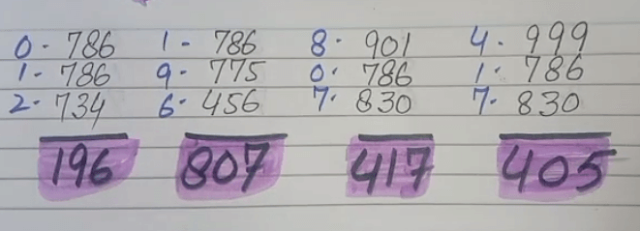 0- 786 1- 786 8- 901 4- 999
1- 786 9- 775 0- 786 1- 786
2- 734 6- 456 7- 830 7- 830
196 807 417 405